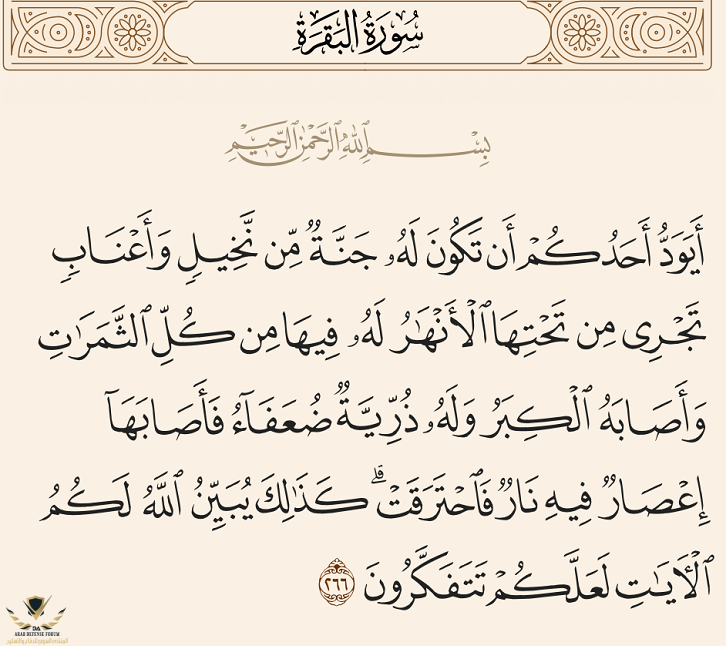 سُورَةُ البَقَرَةِ
بِسْمِ اللَّهِ الرَّحْمَٰنِ الرَّحِيمِ
أَيَوَدُّ أَحَدُكُمْ أَن تَكُونَ لَهُۥ جَنَّةٌ مِّن نَّخِيلٍ وَأَعْنَابٍ
تَجْرِى مِن تَحْتِهَا ٱلْأَنْهَٰرُ لَهُۥ فِيهَا مِن كُلِّ ٱلثَّمَرَٰتِ
وَأَصَابَهُ ٱلْكِبَرُ وَلَهُۥ ذُرِّيَّةٌ ضُعَفَآءُ فَأَصَابَهَآ
إِعْصَارٌ فِيهِ نَارٌ فَٱحْتَرَقَتْ ۗ كَذَٰلِكَ يُبَيِّنُ ٱللَّهُ لَكُمُ
ٱلْـَٔايَٰتِ لَعَلَّكُمْ تَتَفَكَّرُونَ ٢٦٦
ARAB DEFENSE FORUM
المنتدى العربي للدفاع والتسليح